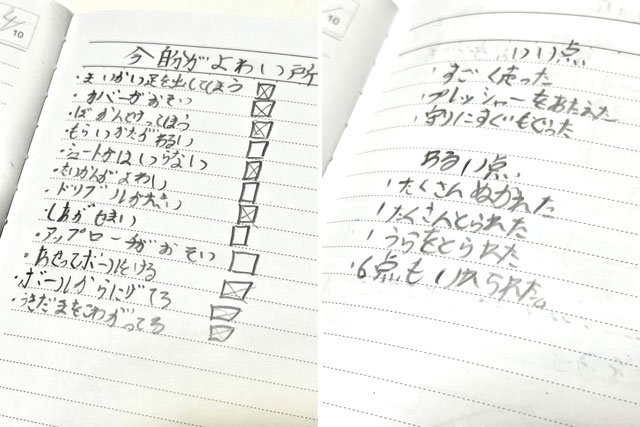 10
今自分がよわい所
・まいかい足を出してしまう
・カバーがおそい
・ばかんとけってしまう
・もらいかたがわるい
・シュートがはいらない
・たいかんがよわい
・ドリブルが大きい
・しあがせまい
・アップローチがおそい
・あせってボールをける
・ボールからにげてる
・うきだまをこわがってる
10
いい点
・すごく使った
・プレッシャーをあたえた
・守りにすぐもどった
わるい点
・たくさんぬかれた
・たくさんとられた
・うらをとられた
・6点もいれられた。